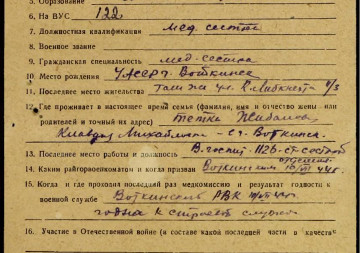 5. Образование
6. На ВУС 122
7. Должностная квалификация мед. сестра
8. Военное звание
9. Гражданская специальность мед-сестра
10. Место рождения УАССР г. Воткинск
11. Последнее место жительства там же ул. К. Либкнехта
12. Где проживает в настоящее время семья (фамилия, имя и отчество жены - или
родителей и точный их адрес) тетка
Клавдия Михайловна - г. Воткинск
13. Последнее место работы и должность В. госпит. 1126-ст-сестрой
14. Каким райгорвоенкоматом и когда призван Воткинским
15. Когда и где проходил последний раз медкомиссию и результат годности к
военной службе Воткинский РВК
годна к строевой службе
16. Участие в Отечественной войне (в составе какой последней части в качестве